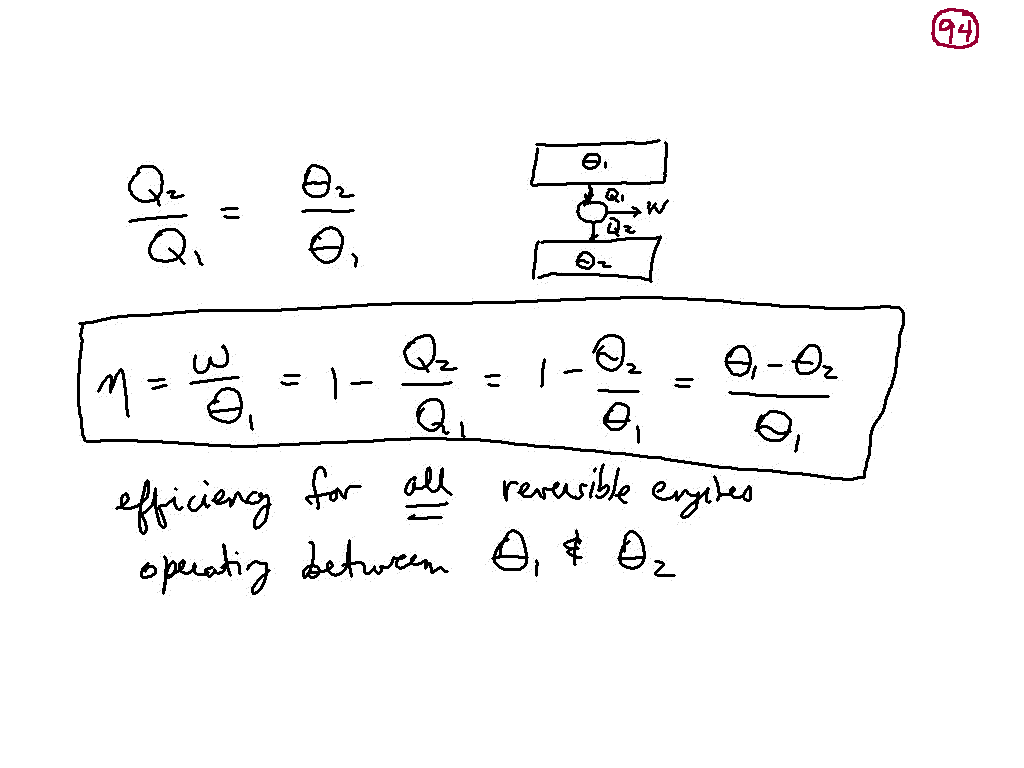 94
Q₂/Q₁ = θ₂/θ₁
θ₁
Q₁
W
Q₂
θ₂
η = W/θ₁ = 1 - Q₂/Q₁ = 1 - θ₂/θ₁ = (θ₁ - θ₂)/θ₁
efficiency for all reversible engines
operating between θ₁ & θ₂